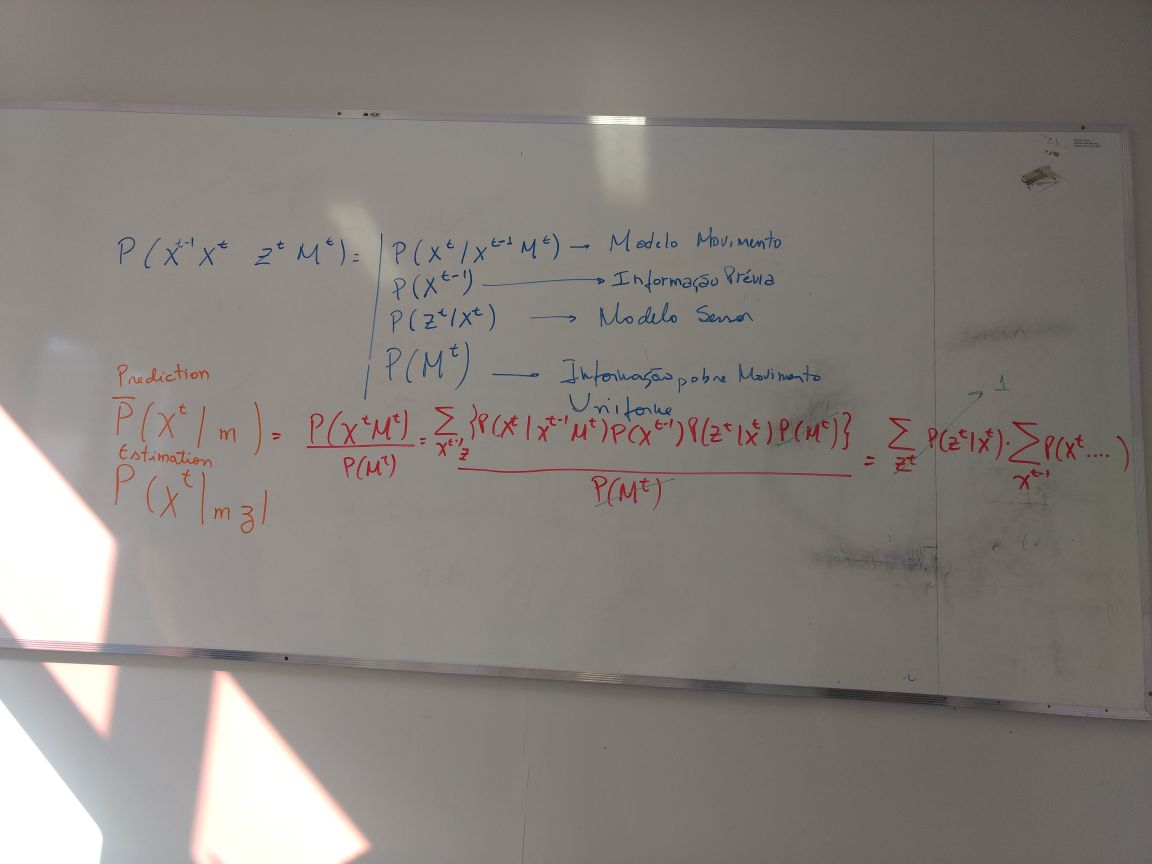 P(X^t-1 X^t z^t M^t) = P(X^t/X^t-1 M^t) → Modelo Movimento
P(X^t-1) → Informação Prévia
P(z^t/X^t) → Modelo Sensor
P(M^t) → Informação pobre Movimento
Uniforme
Prediction
P̄(X^t | m) = P(X^t M^t) / P(M^t) = ∑_{X^t-1 z} {P(X^t | X^t-1 M^t) P(X^t-1) P(z^t | X^t) P(M^t)} / P(M^t) = ∑_{z^t} P(z^t | X^t) · ∑_{X^t-1} P(X^t ....)
1
Estimation
P(X^t | m z)